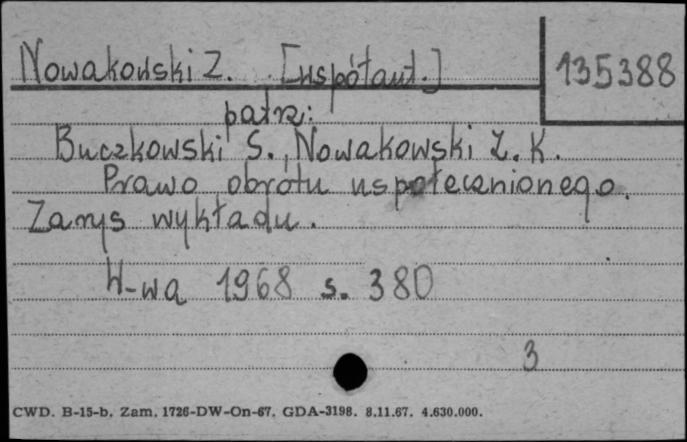 Nowakowski Z. [współaut.] 135388
patrz:
Buczkowski S., Nowakowski Z. K.
Prawo obrotu uspołecznionego.
Zarys wykładu.
W-wa 1968 s. 380
3
CWD. B-15-b. Zam. 1726-DW-On-67. GDA-3198. 8.11.67. 4.630.000.